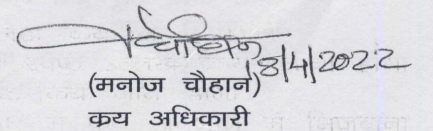 18/4/2022
(मनोज चौहान)
क्रय अधिकारी